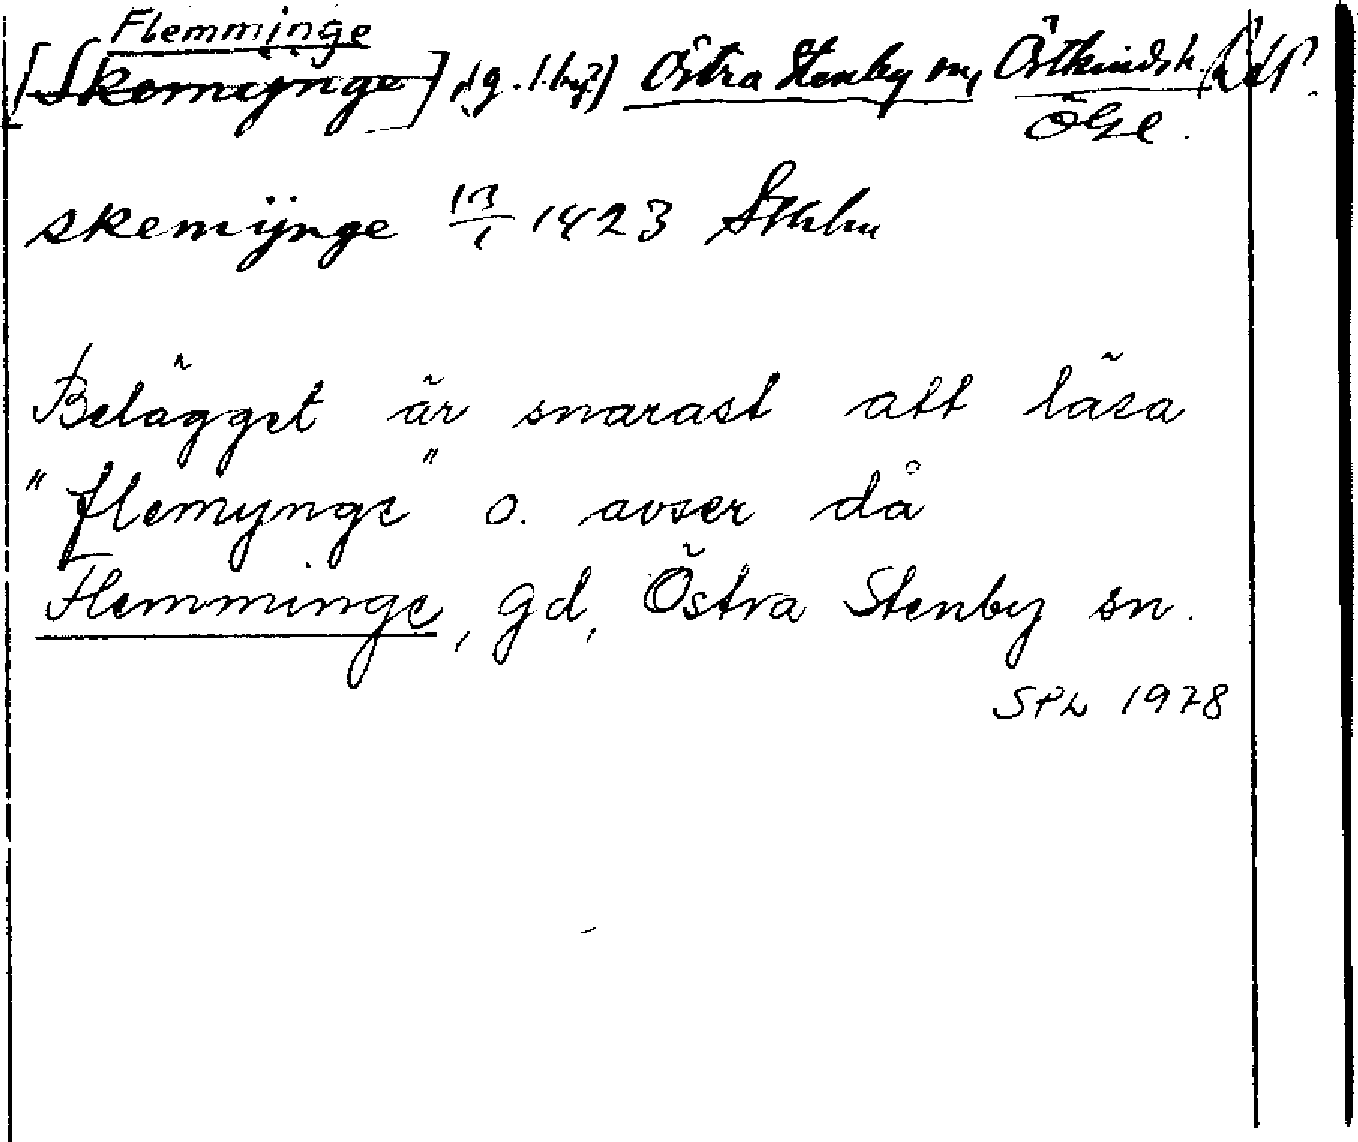 Flemminge
[Skemÿnge] (g. l. by?) Östra Stenby sn, Östkinds h
Ögl.
skemÿnge 13/1 1423 Sthlm
Belägget är snarast att läsa
"flemynge" o. avser då
Flemminge, gd, Östra Stenby sn.
SPL 1978